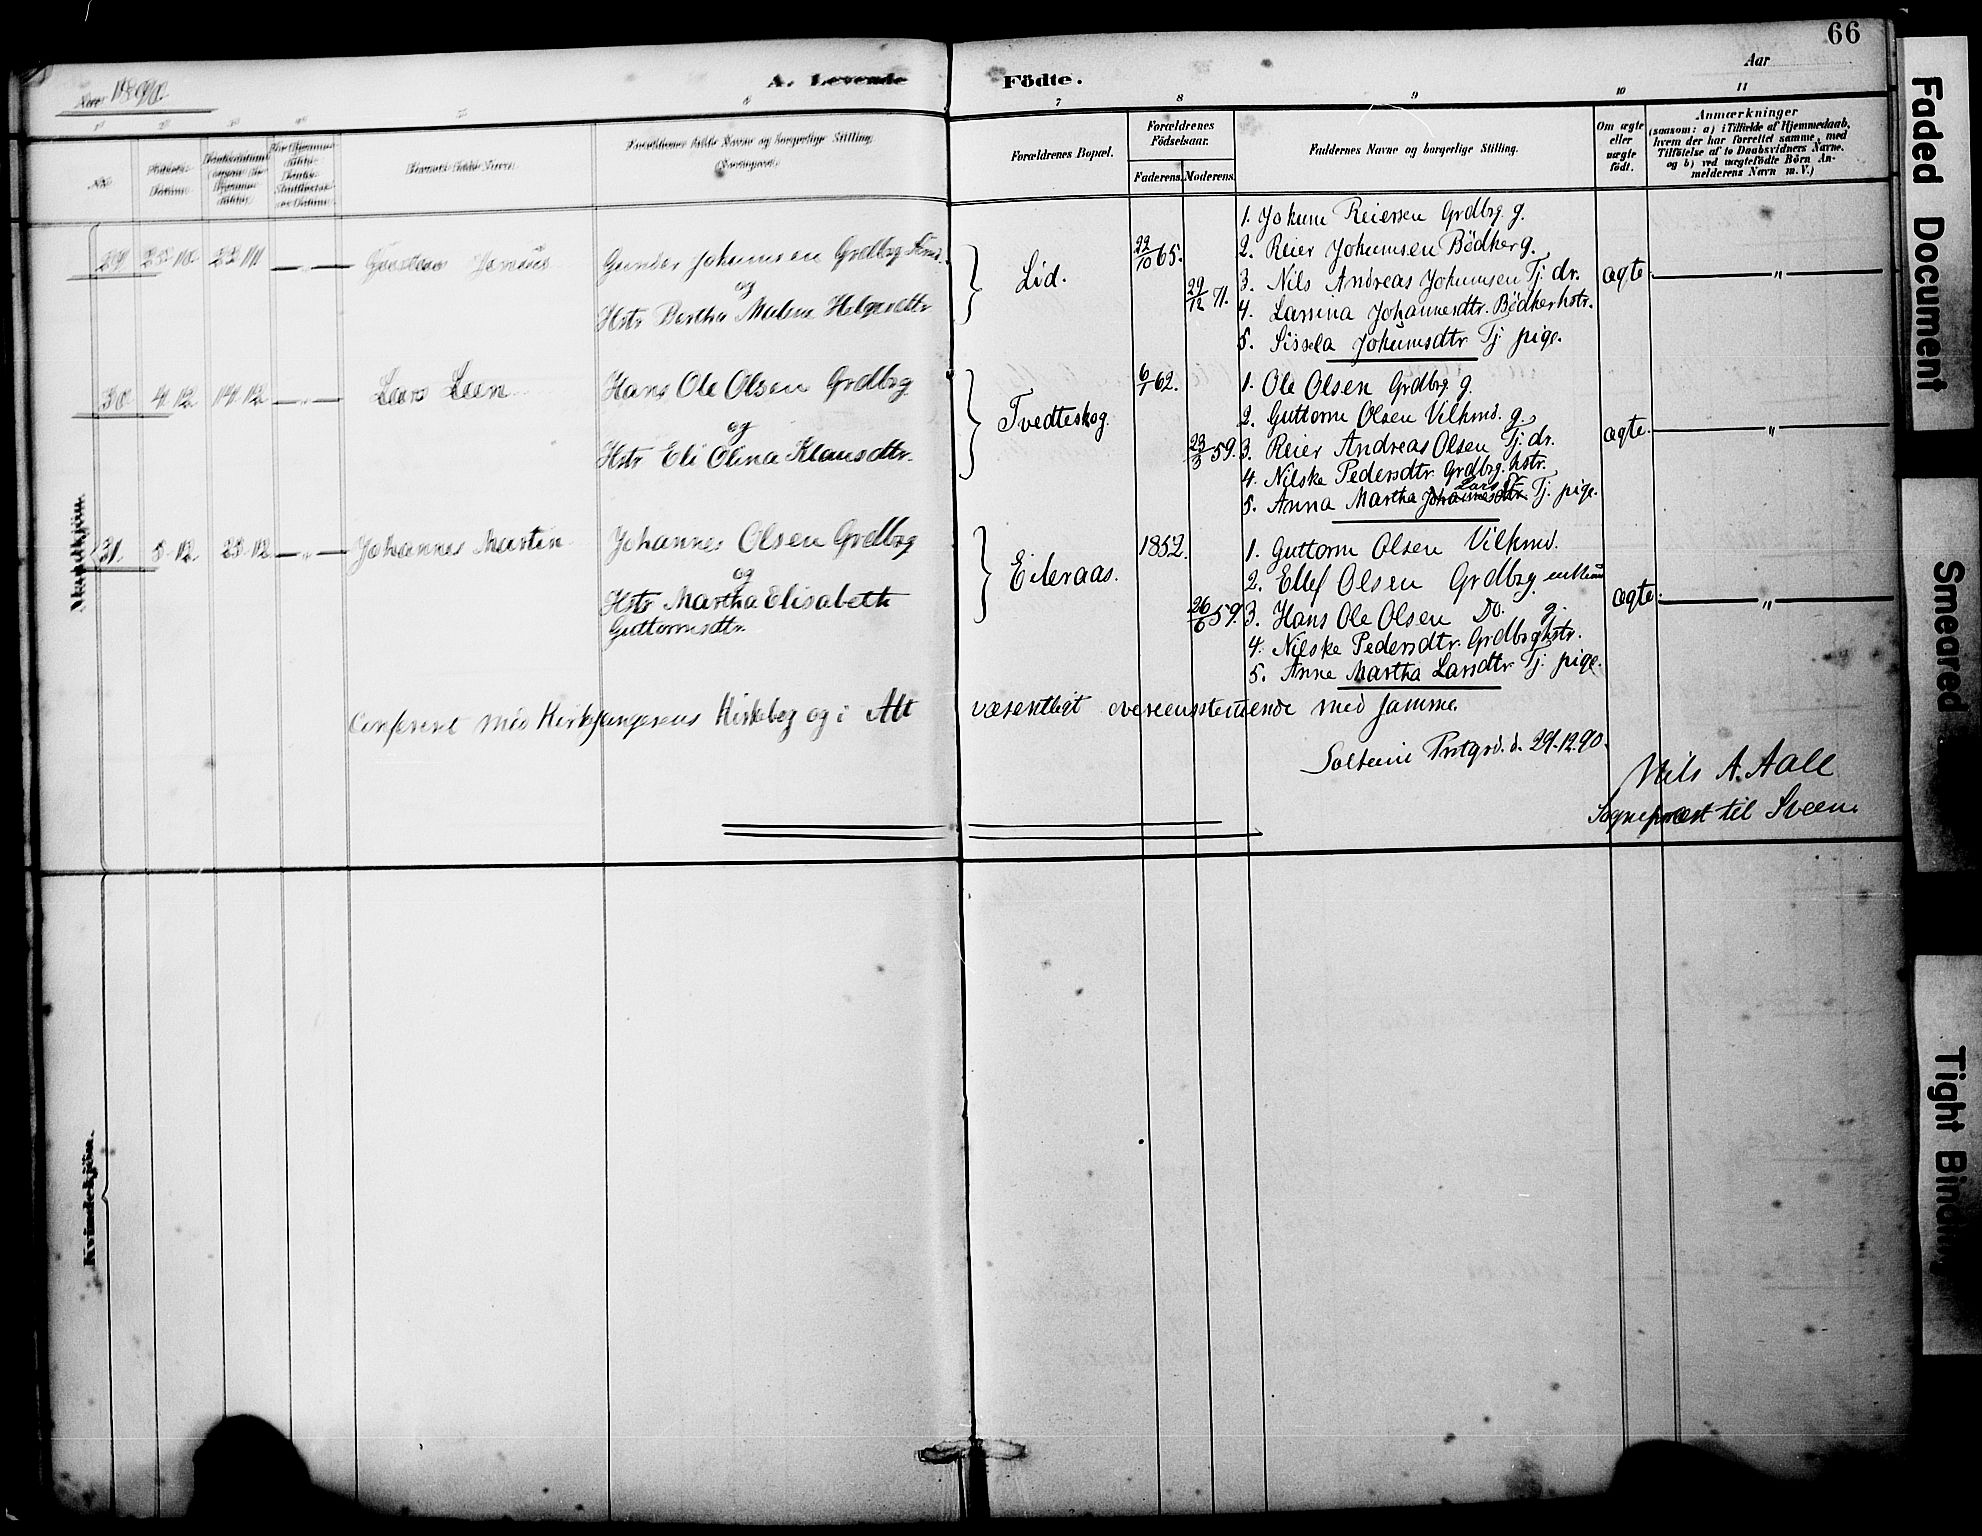 66
Aar 1890.
A. Levende Födte.
Aar
6 7 8 9 10 11
No.
Barnets fulde Navn.
Forældrenes fulde Navne og borgerlige Stilling.
Forældrenes Bopæl.
Forældrenes Födselsaar.
Faderens. Moderens.
Faddernes Navne og borgerlige Stilling.
Om ægte
eller
uægte
födt.
Anmærkninger
(saasom: a) i Tilfælde af Hjemmedaab,
hvem der har forrettet samme, med
Tilföielse af to Daabsvidners Navne.
og b) ved uægtefödte Börn An-
melderens Navn m. V.)
Mandkjön.
29 22/11 — " —
Gunder Johannesen Grdbrg
og
Hstr Bertha Malene Helgesdtr
Lid.
22/10 65.
29/12 71.
1. Johanns Reiersen Grdbrg. g.
2. Reier Johannsen Bödker g.
3. Nils Andreas Johannsen Tj. dr.
4. Larsina Johannesdtr. Bödkerhstr.
5. Sissela Johannsdtr Tj. pige.
ægte.
— " —
30 4/12 14/12 — " —
Lars Leen
Hans Ole Olsen Grdbrg
og
Hstr Eli Olina Klausdtr.
Tvedteskog.
6/1 62.
23/3 59.
1. Ole Olsen Grdbrg. g.
2. Guttorm Olsen Vilkmd. g.
3. Reier Andreas Olsen Tj. dr.
4. Nilske Pedersdtr. Grdbrg. hstr.
5. Anna Martha Johannesdtr Larsdtr Tj. pige.
ægte.
— " —
31. 5/12 25/12 — " —
Johannes Martin
Johannes Olsen Grdbrg
og
Hstr Martha Elisabeth
Guttormsdtr.
Eileraas.
1852.
26/6 59.
1. Guttorm Olsen Vilkmd.
2. Ellef Olsen Grdbrg enkem
3. Hans Ole Olsen Do. g.
4. Nilske Pedersdtr. Grdbrghstr.
5. Anne Martha Larsdtr Tj. pige.
ægte.
— " —
Confereret med Kirkesangerens Kirkebog og i Alt væsentligt overensstemmende med samme.
Prstgrd. d. 29.12.90.
Nils A. Aall
Sogneprest til Sveen.
Kvindekjön.
Faded Document
Smeared
Tight Binding